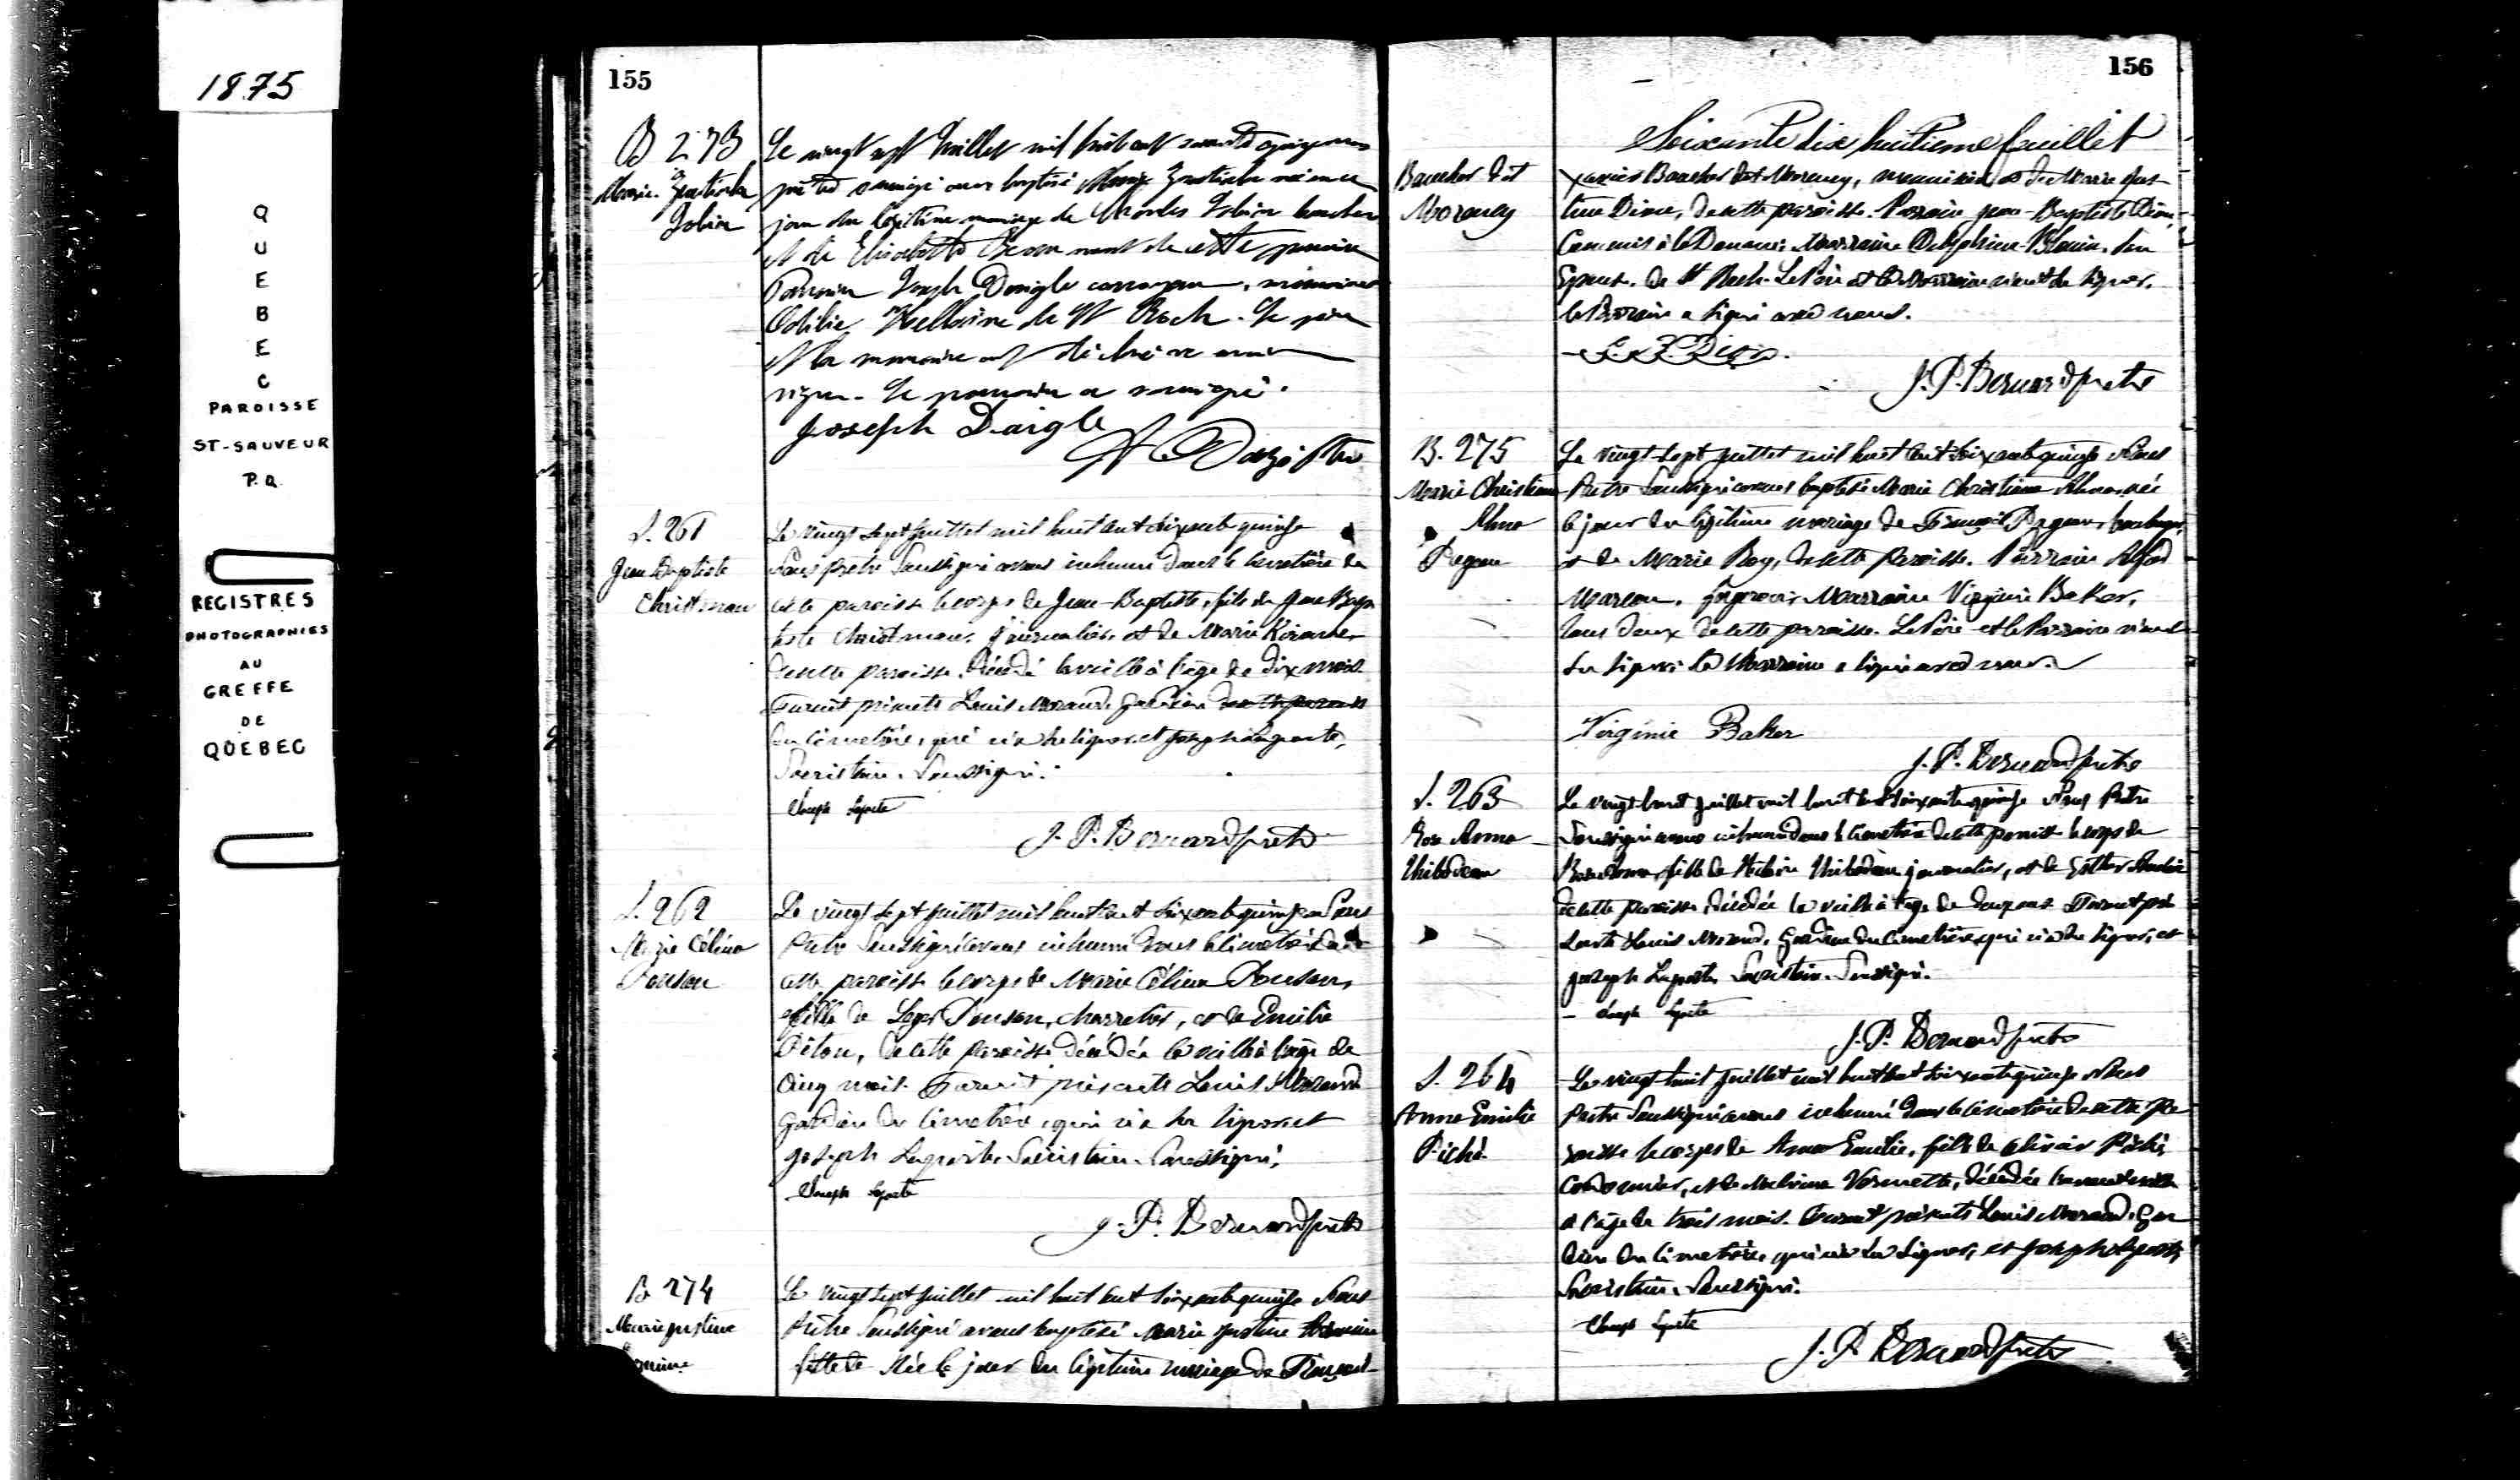 1875
QUEBEC
PAROISSE
ST-SAUVEUR
P.Q.
REGISTRES
PHOTOGRAPHIES
AU
GREFFE
DE
QUEBEC
155
B 273
Marie
Jobin
Le vingt sept Juillet mil huit cent soixante quinze nous
prêtre soussigné avons baptisé Marie née ce
jour du légitime mariage de Charles Jobin boucher
et de Elisabeth de cette paroisse
Parrain Joseph Daigle corroyeur, marraine
Odilie de St Roch. Le père
et la marraine ont déclaré ne savoir
signer. Le parrain a soussigné.
Joseph Daigle
Ptre
S. 261
Jean Baptiste
Christman
Le vingt sept juillet mil huit cent soixante quinze
Nous prêtre soussigné avons inhumé dans le cimetière de
cette paroisse le corps de Jean-Baptiste, fils de Jean Bap
tiste Christman, journalier, et de Marie
de cette paroisse, décédé la veille à l'âge de dix mois.
Furent présents Louis Morand, gardien de cette paroisse
du cimetière, qui n'a su signer, et Joseph Laporte,
Sacristain, soussigné.
Joseph Laporte
J. P. Bernard ptre
S. 262
Marie Célina
Le vingt sept juillet mil huit cent soixante quinze Nous
Prêtre soussigné avons inhumé dans le cimetière de
cette paroisse le corps de Marie Célina
fille de Léger charretier, et de Emilie
de cette paroisse décédée la veille à l'âge de
cinq mois. Furent présents Louis Morand
gardien du cimetière, qui n'a su signer, et
Joseph Laporte, Sacristain, soussigné,
Joseph Laporte
J. P. Bernard ptre
B 274
Marie Justine
Le vingt sept juillet mil huit cent soixante quinze Nous
Prêtre soussigné avons baptisé Marie Justine
fille de Née le jour du légitime mariage de François-
156
Soixante dix huitième feuillet
Boucher dit
Morency
Xavier Boucher dit Morency, menuisier, et de Marie Jus-
tine Dion, de cette paroisse. Parrain Jean-Baptiste Dion,
Commis à la Douane; Marraine Delphine Blouin, son
Epouse, de St Roch. Le Père et la Marraine n'ont su signer.
le Parrain a signé avec nous.
Dion.
J. P. Bernard ptre
B. 275
Marie Christiana
Alma
Pageau
Le vingt-sept juillet mil huit cent soixante quinze Nous
Prêtre soussigné avons baptisé Marie Christiana Alma, née
le jour du légitime mariage de François Pageau, boulanger,
et de Marie Roy, de cette paroisse. Parrain Alfred
Marceau, Marraine Virginie Baker,
tous deux de cette paroisse. Le Père et le Parrain n'ont
su signer. La Marraine a signé avec nous.
Virginie Baker
J. P. Bernard ptre
S. 263
Rose Anna
Thibodeau
Le vingt huit juillet mil huit cent soixante quinze Nous Prêtre
soussigné avons inhumé dans le cimetière de cette paroisse le corps de
Rose Anna, fille de Thibodeau journalier, et de Esther
de cette paroisse, décédée la veille à l'âge de Furent pré
sents Louis Morand, Gardien du cimetière, qui n'a su signer, et
Joseph Laporte, Sacristain, soussigné.
Joseph Laporte
J. P. Bernard ptre
S. 264
Anne Emilie
Piché
Le vingt huit juillet mil huit cent soixante quinze Nous
Prêtre soussigné avons inhumé dans le cimetière de cette pa
roisse le corps de Anne Emilie, fille de Olivier Piché,
cordonnier, et de Malvina Vermette, décédée
à l'âge de trois mois. Furent présents Louis Morand, Gar
dien du cimetière, qui n'a su signer, et Joseph Laporte,
Sacristain, soussigné.
Joseph Laporte
J. P. Bernard ptre